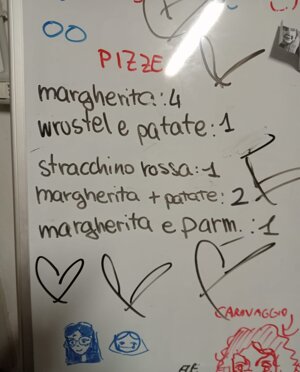 PIZZE
margherita:4
wrustel e patate:1
stracchino rossa:1
margherita + patate: 2
margherita e parm.:1
CARAVAGGIO